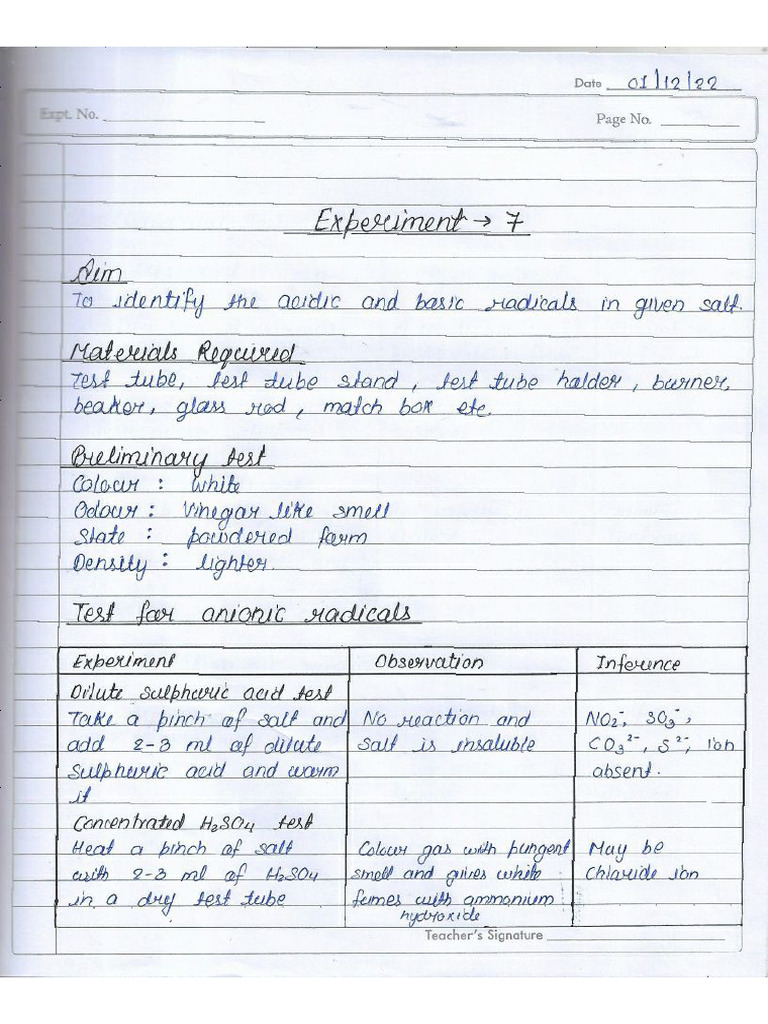 Date 01/12/22
Expt. No.
Page No.
Experiment → 7
Aim
To identify the acidic and basic radicals in given salt.
Materials Required
Test tube, test tube stand, test tube holder, burner,
beaker, glass rod, match box etc.
Preliminary test
Colour : White
Odour : Vinegar like smell
State : powdered form
Density : lighter.
Test for anionic radicals
Experiment Observation Inference
Dilute sulphuric acid test
Take a pinch of salt and No reaction and NO₂⁻, SO₃⁻,
add 2-3 ml of dilute salt is insoluble CO₃²⁻, S²⁻, ion
sulphuric acid and warm absent.
it
Concentrated H₂SO₄ test
Heat a pinch of salt Colour gas with pungent May be
with 2-3 ml of H₂SO₄ smell and gives white Chloride ion
in a dry test tube fumes with ammonium
hydroxide
Teacher's Signature